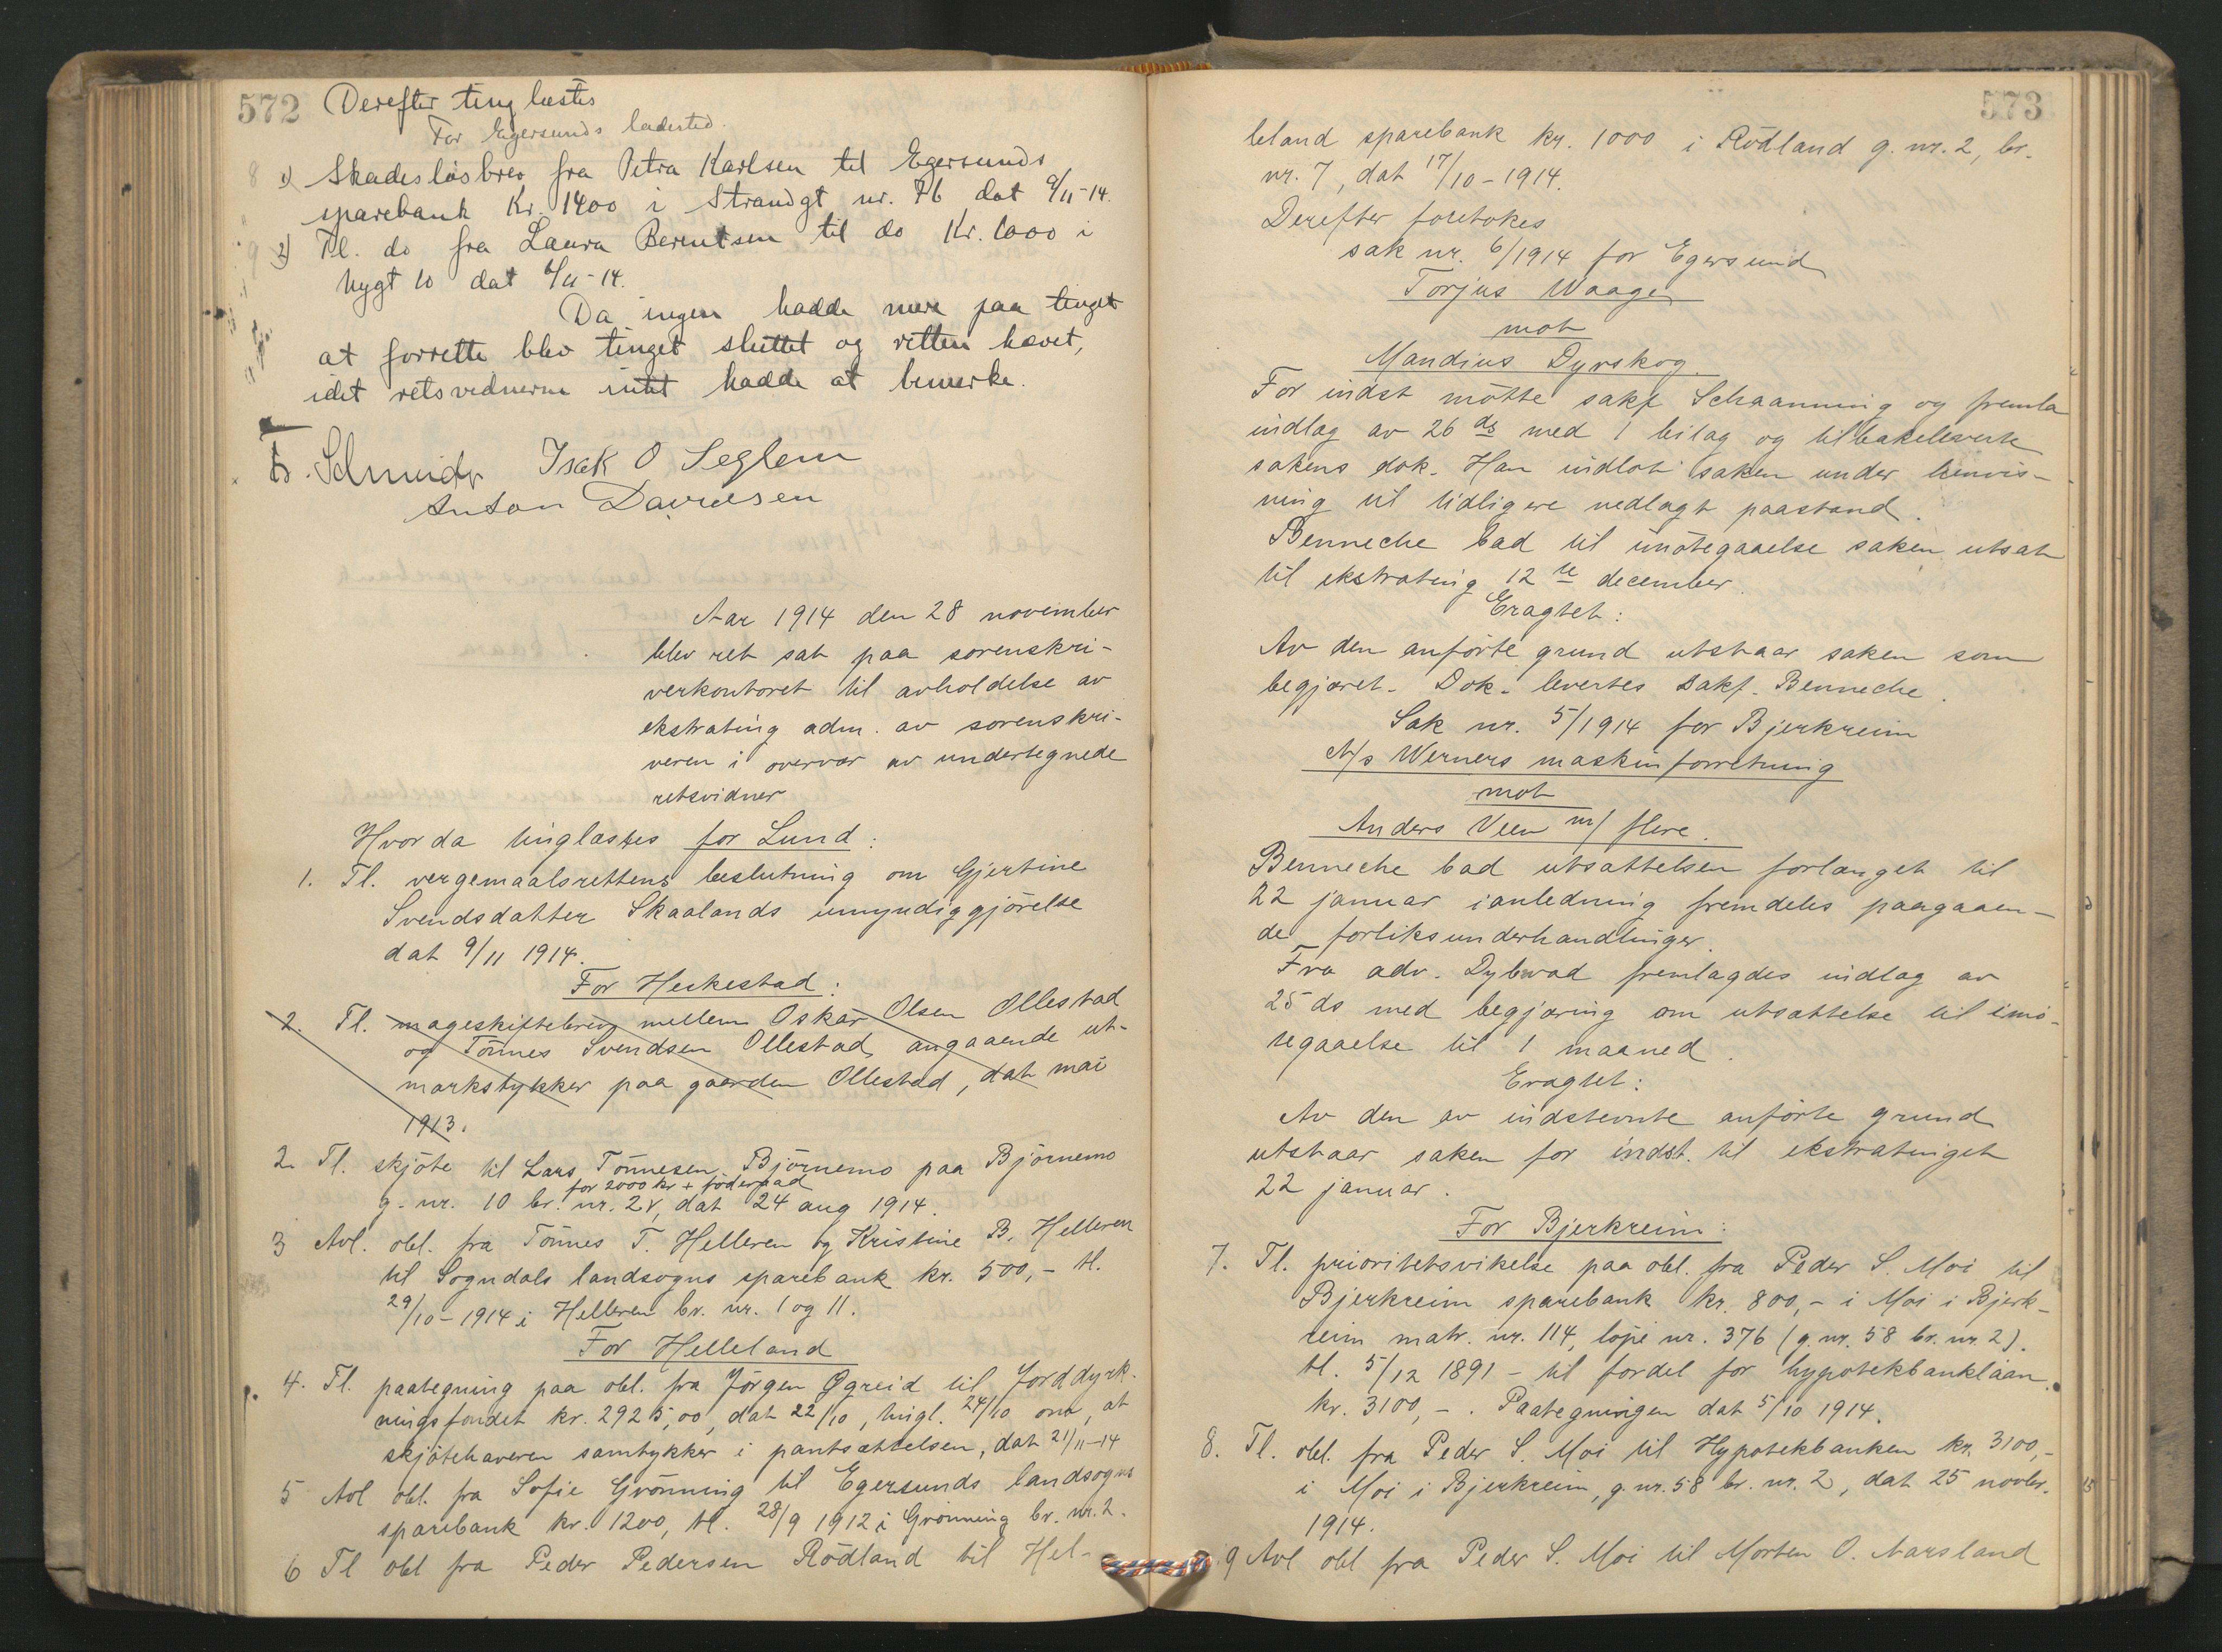 572
Derefter tinglæstes
For Egersunds ladested.
8 1) Skadesløsbrev fra Petra Karlsen til Egersunds
sparebank Kr. 1400 i Strandgt nr. 76 dat 9/11-14.
9 2) Tl. do fra Laura Berentsen til do Kr. 1000 i
Nygt 10 dat 6/11-14.
Da ingen hadde mere paa tinget
at forrette blev tinget sluttet og retten hævet,
idet retsvidnerne intet hadde at bemerke.
Schneider Isak O Seglem
Anton Davidsen
Aar 1914 den 28 november
blev ret sat paa sorenskri-
verkontoret til avholdelse av
ekstrating adm. av sorenskri-
veren i overvær av undertegnede
retsvidner
Hvorda tinglæstes for Lund:
1. Tl. vergemaalsrettens beslutning om Gjertine
Svendsdatter Skaalands umyndiggjörelse
dat 9/11 1914.
For Heskestad:
2. Tl. mageskiftebrev mellem Oskar Olsen Ollestad
og Tönnes Svendsen Ollestad angaaende ut-
markstykker paa gaarden Ollestad, dat mai
1913.
2. Tl. skjöte til Lars Tönnesen Björnemo paa Björnemo
for 2000 kr + föderaad
g. nr. 10 br. nr. 2, dat 24 aug 1914.
3 Avl. obl. fra Tönnes T. Helleren og Kristine B. Helleren
til Sogndals landsogns sparebank kr. 500,- tl.
29/10-1914 i Helleren br. nr. 1 og 11.
For Helleland
4. Tl. paategning paa obl. fra Jörgen Øgreid til Jorddyrk-
ningsfondet kr. 2925,00, dat 22/10, tingl. 24/10 om, at
skjötehaveren samtykker i pantsættelsen, dat 21/11-14
5 Avl obl. fra Sofie Grönning til Egersunds landsogns
sparebank kr. 1200, tl. 28/9 1912 i Grönning br. nr. 2.
6 Tl obl fra Peder Pedersen Rödland til Hel-
573
leland sparebank kr. 1000 i Rödland g. nr. 2, br.
nr. 7, dat 17/10-1914.
Derefter foretokes
sak nr. 6/1914 for Egersund
Torjus Waage
mot
Mandius Dyrskog.
For indst mötte sakf Schaanning og fremla
indlag av 26 ds med 1 bilag og tilbakeleverte
sakens dok. Han indlot saken under henvis-
ning til tidligere nedlagt paastand.
Benneche bad til imötegaaelse saken utsat
til ekstrating 12te december.
Eragtet:
Av den anförte grund utstaar saken som
begjæret. Dok. levertes sakf. Benneche.
Sak nr. 5/1914 for Bjerkreim
A/s Werners maskinforretning
mot
Anders Veen m/ flere.
Benneche bad utsættelsen forlænget til
22 januar i anledning fremdeles paagaaen-
de forliksunderhandlinger.
Fra adv. Dybwad fremlagdes indlag av
25 ds med begjæring om utsættelse til imö-
tegaaelse til 1 maaned.
Eragtet:
Av den av indstevnte anförte grund
utstaar saken for indst. til ekstratinget
22 januar.
For Bjerkreim:
7. Tl. prioritetsvikelse paa obl. fra Peder S. Moi til
Bjerkreim sparebank kr. 800,- i Moi i Bjerk-
reim matr. nr. 114, löpe nr. 376 (g. nr. 58 br. nr. 2).
tl. 5/12 1891 - til fordel for hypotekbanklaan
kr. 3100,-. Paategningen dat 5/10 1914.
8. Tl. obl. fra Peder S. Moi til Hypotekbanken kr. 3100,-
i Moi i Bjerkreim, g. nr. 58 br. nr. 2, dat 25 novbr.
1914.
9 Avl obl fra Peder S. Moi til Morten O. Aarsland